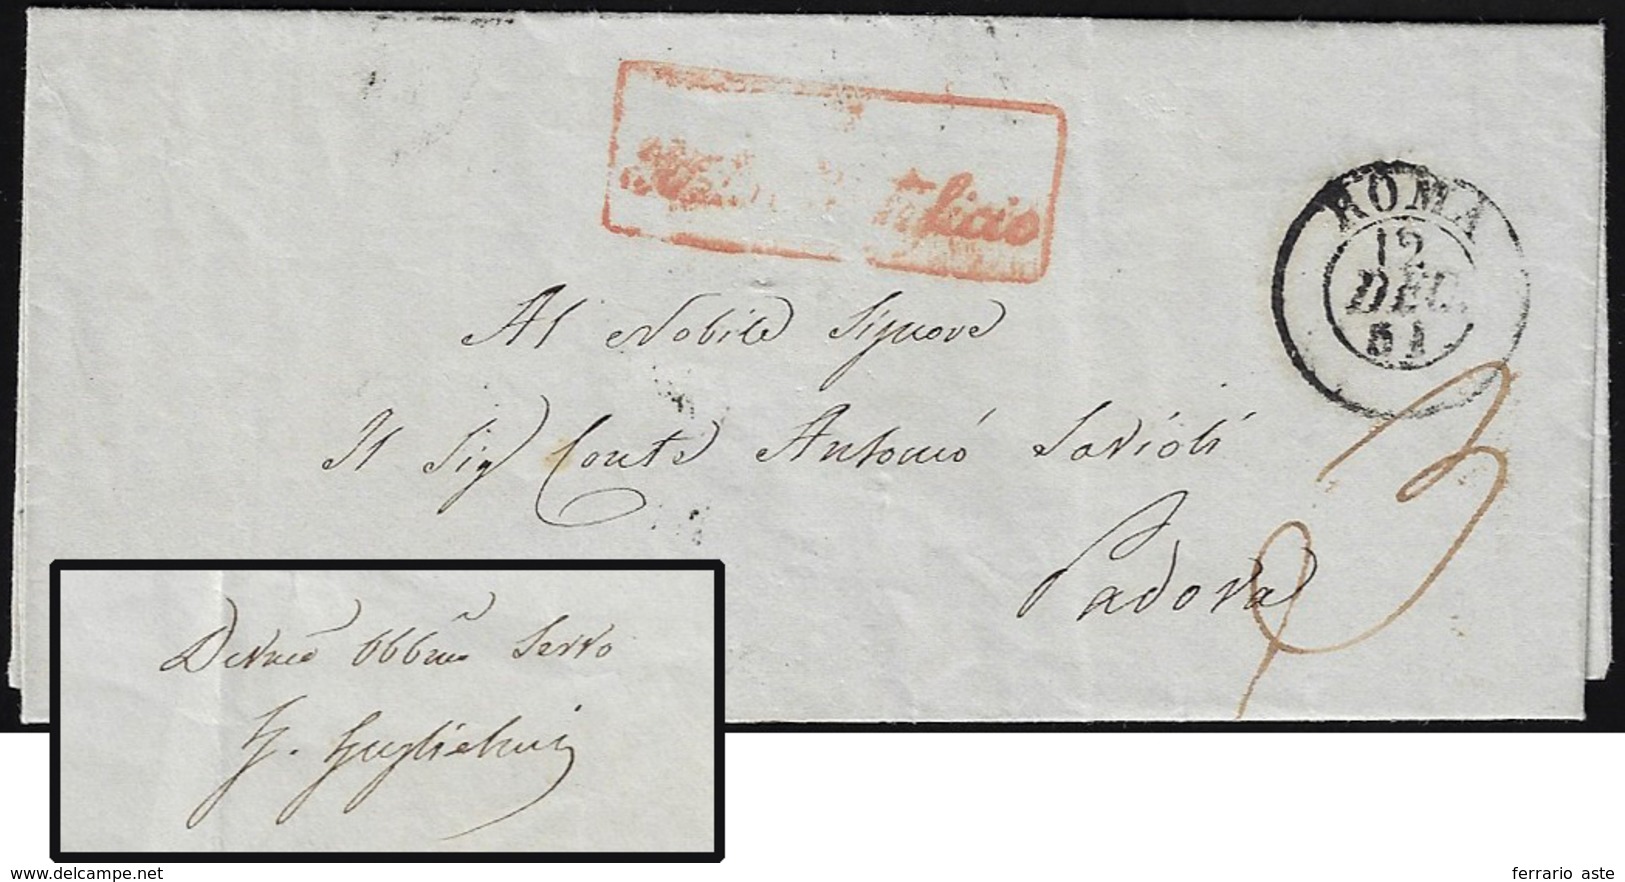 ROMA
12
DEC.
51
Al Nobile Signore
Il Sig Conte Antonio Savioli
Padova
3
Devmo Obbmo Servo
G. Guglielmi
delcampe.net
ferrario aste